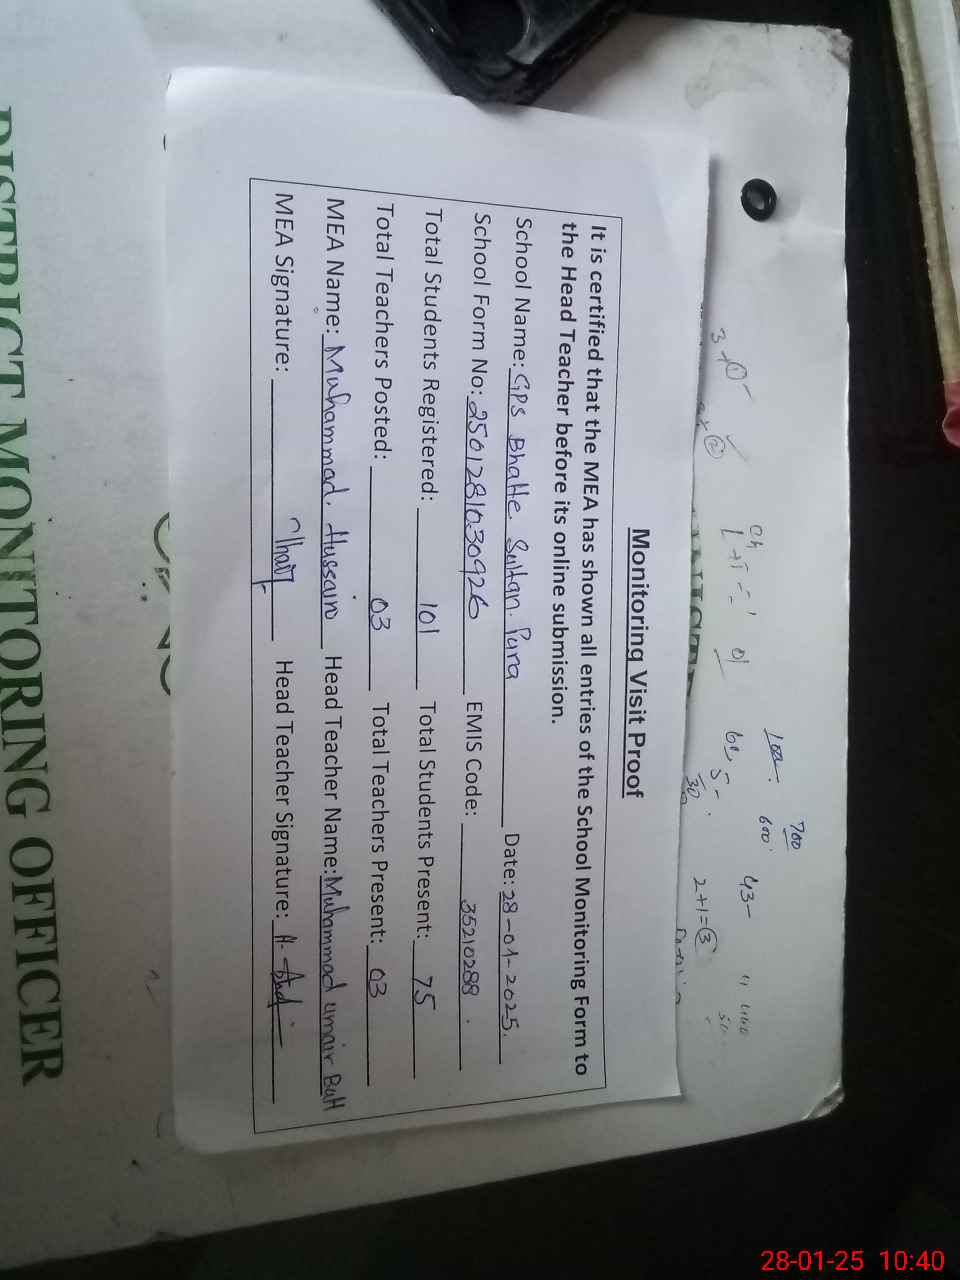 Monitoring Visit Proof
It is certified that the MEA has shown all entries of the School Monitoring Form to
the Head Teacher before its online submission.
School Name: GPS Bhatte. Sultan. Pura Date: 28-01-2025.
School Form No: 2501281030926 EMIS Code: 35210288.
Total Students Registered: 101 Total Students Present: 75
Total Teachers Posted: 03 Total Teachers Present: 03
MEA Name: Muhammad. Hussain Head Teacher Name: Muhammad umair Butt
MEA Signature: Head Teacher Signature:
DISTRICT MONITORING OFFICER
700
600
43-
2+1=3
28-01-25 10:40